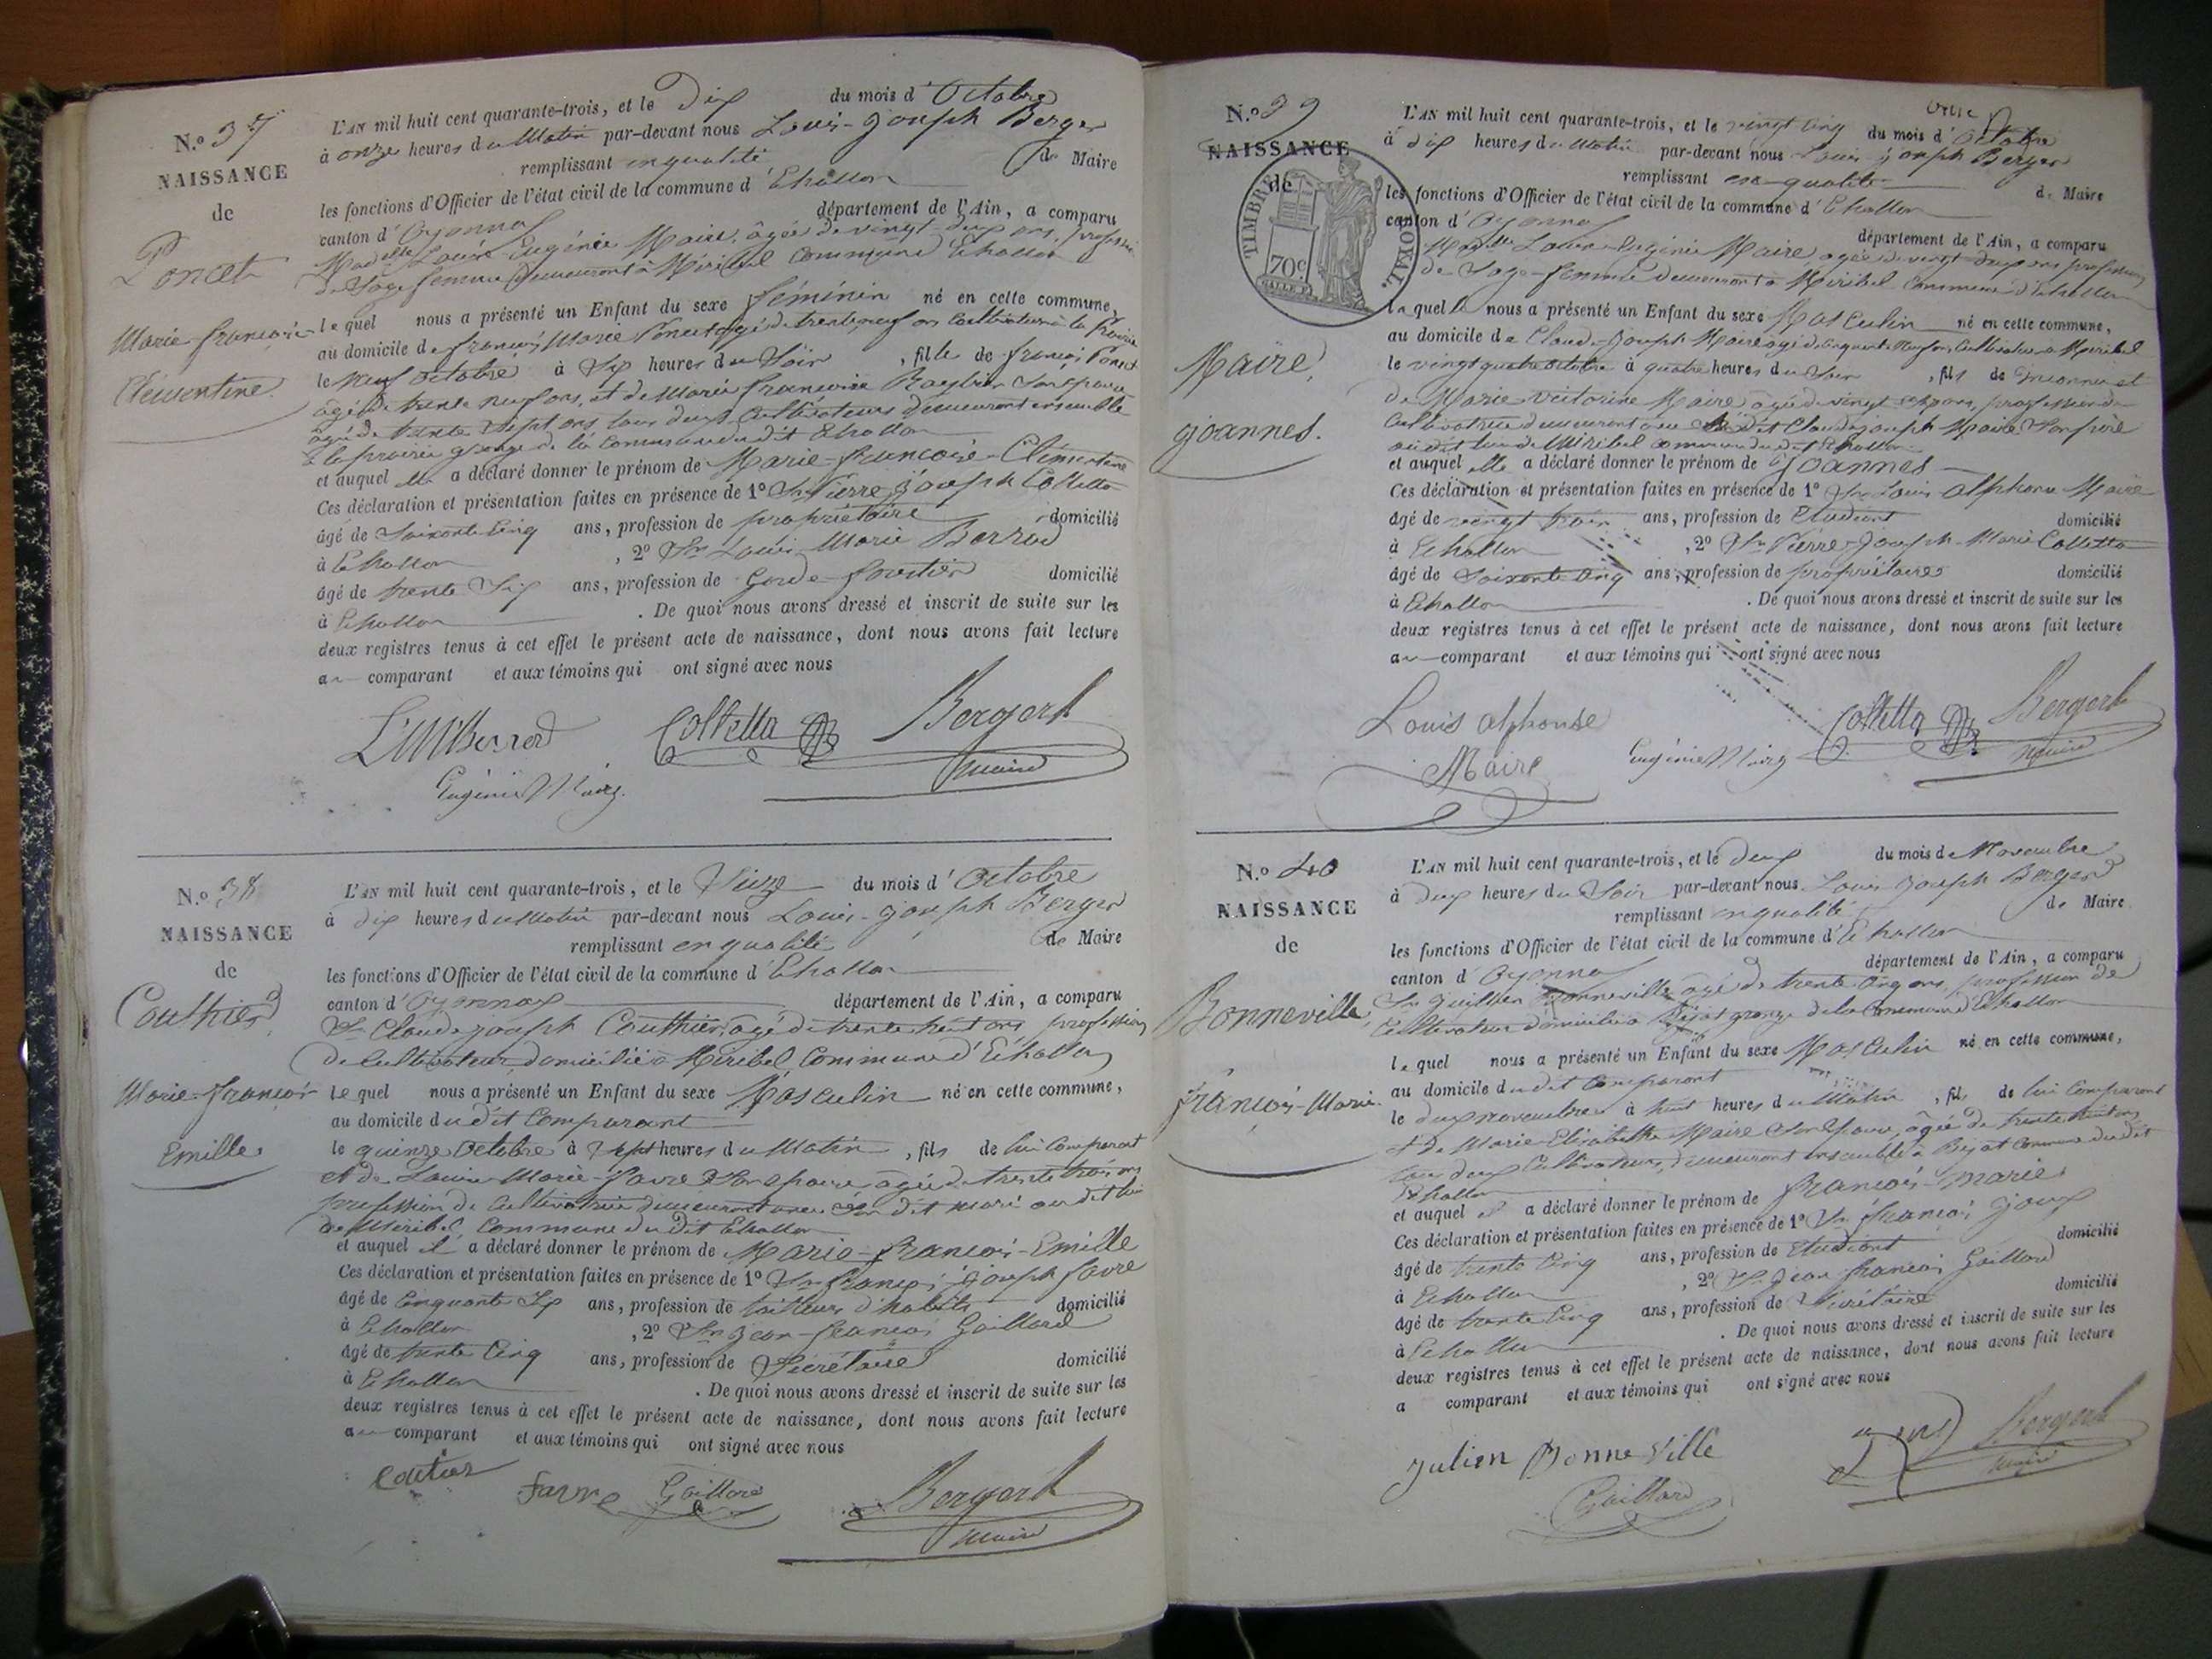 N.o 37
NAISSANCE
de
Poncet
Marie françoise
Clémentine.
L'AN mil huit cent quarante-trois, et le Dix du mois d'Octobre
à onze heures du Matin par-devant nous Louis-Joseph Berger
remplissant en qualité de Maire
les fonctions d'Officier de l'état civil de la commune d'Echallon
canton d'Oyonnax département de l'Ain, a comparu
Madelle Louise Eugénie Maire, âgée de vingt-deux ans, profession
de Sage femme demeurant à Miribel commune d'Echallon
lequel nous a présenté un Enfant du sexe féminin né en cette commune,
au domicile de françois Marie Poncet âgé de trente neuf ans Cultivateur à la Prairie
le Neuf octobre à Six heures du Soir, fille de françois Poncet
âgé de trente neuf ans, et de Marie françoise Son épouse
âgée de trente Sept ans, tous deux Cultivateurs demeurant ensemble
à la prairie grange de la Commune du dit Echallon
et auquel elle a déclaré donner le prénom de Marie-françoise-Clémentine
Ces déclaration et présentation faites en présence de 1o Sr Pierre Joseph Colletta
âgé de Soixante Cinq ans, profession de propriétaire domicilié
à Echallon, 2o Sr Louis Marie Berrod
âgé de trente Six ans, profession de Garde-forestier domicilié
à Echallon. De quoi nous avons dressé et inscrit de suite sur les
deux registres tenus à cet effet le présent acte de naissance, dont nous avons fait lecture
au comparant et aux témoins qui ont signé avec nous
L M Berrod Colletta Bergert
Eugénie Maire maire
N.o 38
NAISSANCE
de
Couthier
Marie-françois
Emille
L'AN mil huit cent quarante-trois, et le Seize du mois d'Octobre
à dix heures du Matin par-devant nous Louis-Joseph Berger
remplissant en qualité de Maire
les fonctions d'Officier de l'état civil de la commune d'Echallon
canton d'Oyonnax département de l'Ain, a comparu
Sr Claude joseph Couthier âgé de trente huit ans profession
de Cultivateur domicilié à Miribel Commune d'Echallon
lequel nous a présenté un Enfant du sexe Masculin né en cette commune,
au domicile du dit Comparant
le quinze Octobre à Sept heures du Matin, fils de lui Comparant
et de Louise Marie favre Son épouse âgée de trente trois ans
profession de Cultivatrice demeurant avec Son dit mari au dit lieu
de Miribel Commune du dit Echallon
et auquel il a déclaré donner le prénom de Marie-françois-Emille
Ces déclaration et présentation faites en présence de 1o Sr françois joseph favre
âgé de Cinquante Six ans, profession de tailleur d'habits domicilié
à Echallon, 2o Sr Jean-françois Gaillard
âgé de trente Cinq ans, profession de Secrétaire domicilié
à Echallon. De quoi nous avons dressé et inscrit de suite sur les
deux registres tenus à cet effet le présent acte de naissance, dont nous avons fait lecture
au comparant et aux témoins qui ont signé avec nous
Coutier favre Gaillard Bergert
maire
N.o 39
NAISSANCE
de
TIMBRE ROYAL.
70c
Maire
Joannes.
L'AN mil huit cent quarante-trois, et le vingt Cinq du mois d'Octobre
à dix heures du Matin par-devant nous Louis-Joseph Berger
remplissant en qualité de Maire
les fonctions d'Officier de l'état civil de la commune d'Echallon
canton d'Oyonnax département de l'Ain, a comparu
Madelle Louise Eugénie Maire âgée de vingt deux ans profession
de Sage-femme demeurant à Miribel Commune d'Echallon
laquelle nous a présenté un Enfant du sexe Masculin né en cette commune,
au domicile de Claude-Joseph Maire âgé de Cinquante Neuf ans Cultivateur à Miribel
le vingt quatre Octobre à quatre heures du Soir, fils de inconnu et
de Marie Victorine Maire âgée de vingt ans, profession de
Cultivatrice demeurant avec le dit Claude joseph Maire Son père
au dit lieu de Miribel commune du dit Echallon
et auquel elle a déclaré donner le prénom de Joannes
Ces déclaration et présentation faites en présence de 1o Sr Louis Alphonse Maire
âgé de vingt trois ans, profession de Etudiant domicilié
à Echallon, 2o Sr Pierre-Joseph-Marie Colletta
âgé de Soixante Cinq ans, profession de propriétaire domicilié
à Echallon. De quoi nous avons dressé et inscrit de suite sur les
deux registres tenus à cet effet le présent acte de naissance, dont nous avons fait lecture
au comparant et aux témoins qui ont signé avec nous
Louis Alphonse Maire Eugénie Maire Colletta Bergert
maire
N.o 40
NAISSANCE
de
Bonneville
françois-Marie
L'AN mil huit cent quarante-trois, et le deux du mois de Novembre
à deux heures du Soir par-devant nous Louis Joseph Berger
remplissant en qualité de Maire
les fonctions d'Officier de l'état civil de la commune d'Echallon
canton d'Oyonnax département de l'Ain, a comparu
Sr Jullien Bonneville âgé de trente Cinq ans, profession de
Cultivateur domicilié à Bejat grange de la Commune d'Echallon
lequel nous a présenté un Enfant du sexe Masculin né en cette commune,
au domicile du dit Comparant
le deux novembre à huit heures du Matin, fils de lui Comparant
et de Marie Elisabeth Maire Son épouse, âgée de trente huit ans
tous deux Cultivateurs, demeurant ensemble à Bejat Commune du dit
Echallon
et auquel il a déclaré donner le prénom de françois-marie
Ces déclaration et présentation faites en présence de 1o Sr françois Joux
âgé de trente Cinq ans, profession de Etudiant domicilié
à Echallon, 2o Sr Jean françois Gaillard
âgé de trente Cinq ans, profession de Secrétaire domicilié
à Echallon. De quoi nous avons dressé et inscrit de suite sur les
deux registres tenus à cet effet le présent acte de naissance, dont nous avons fait lecture
a comparant et aux témoins qui ont signé avec nous
Julien Bonneville Bergert
Gaillard maire